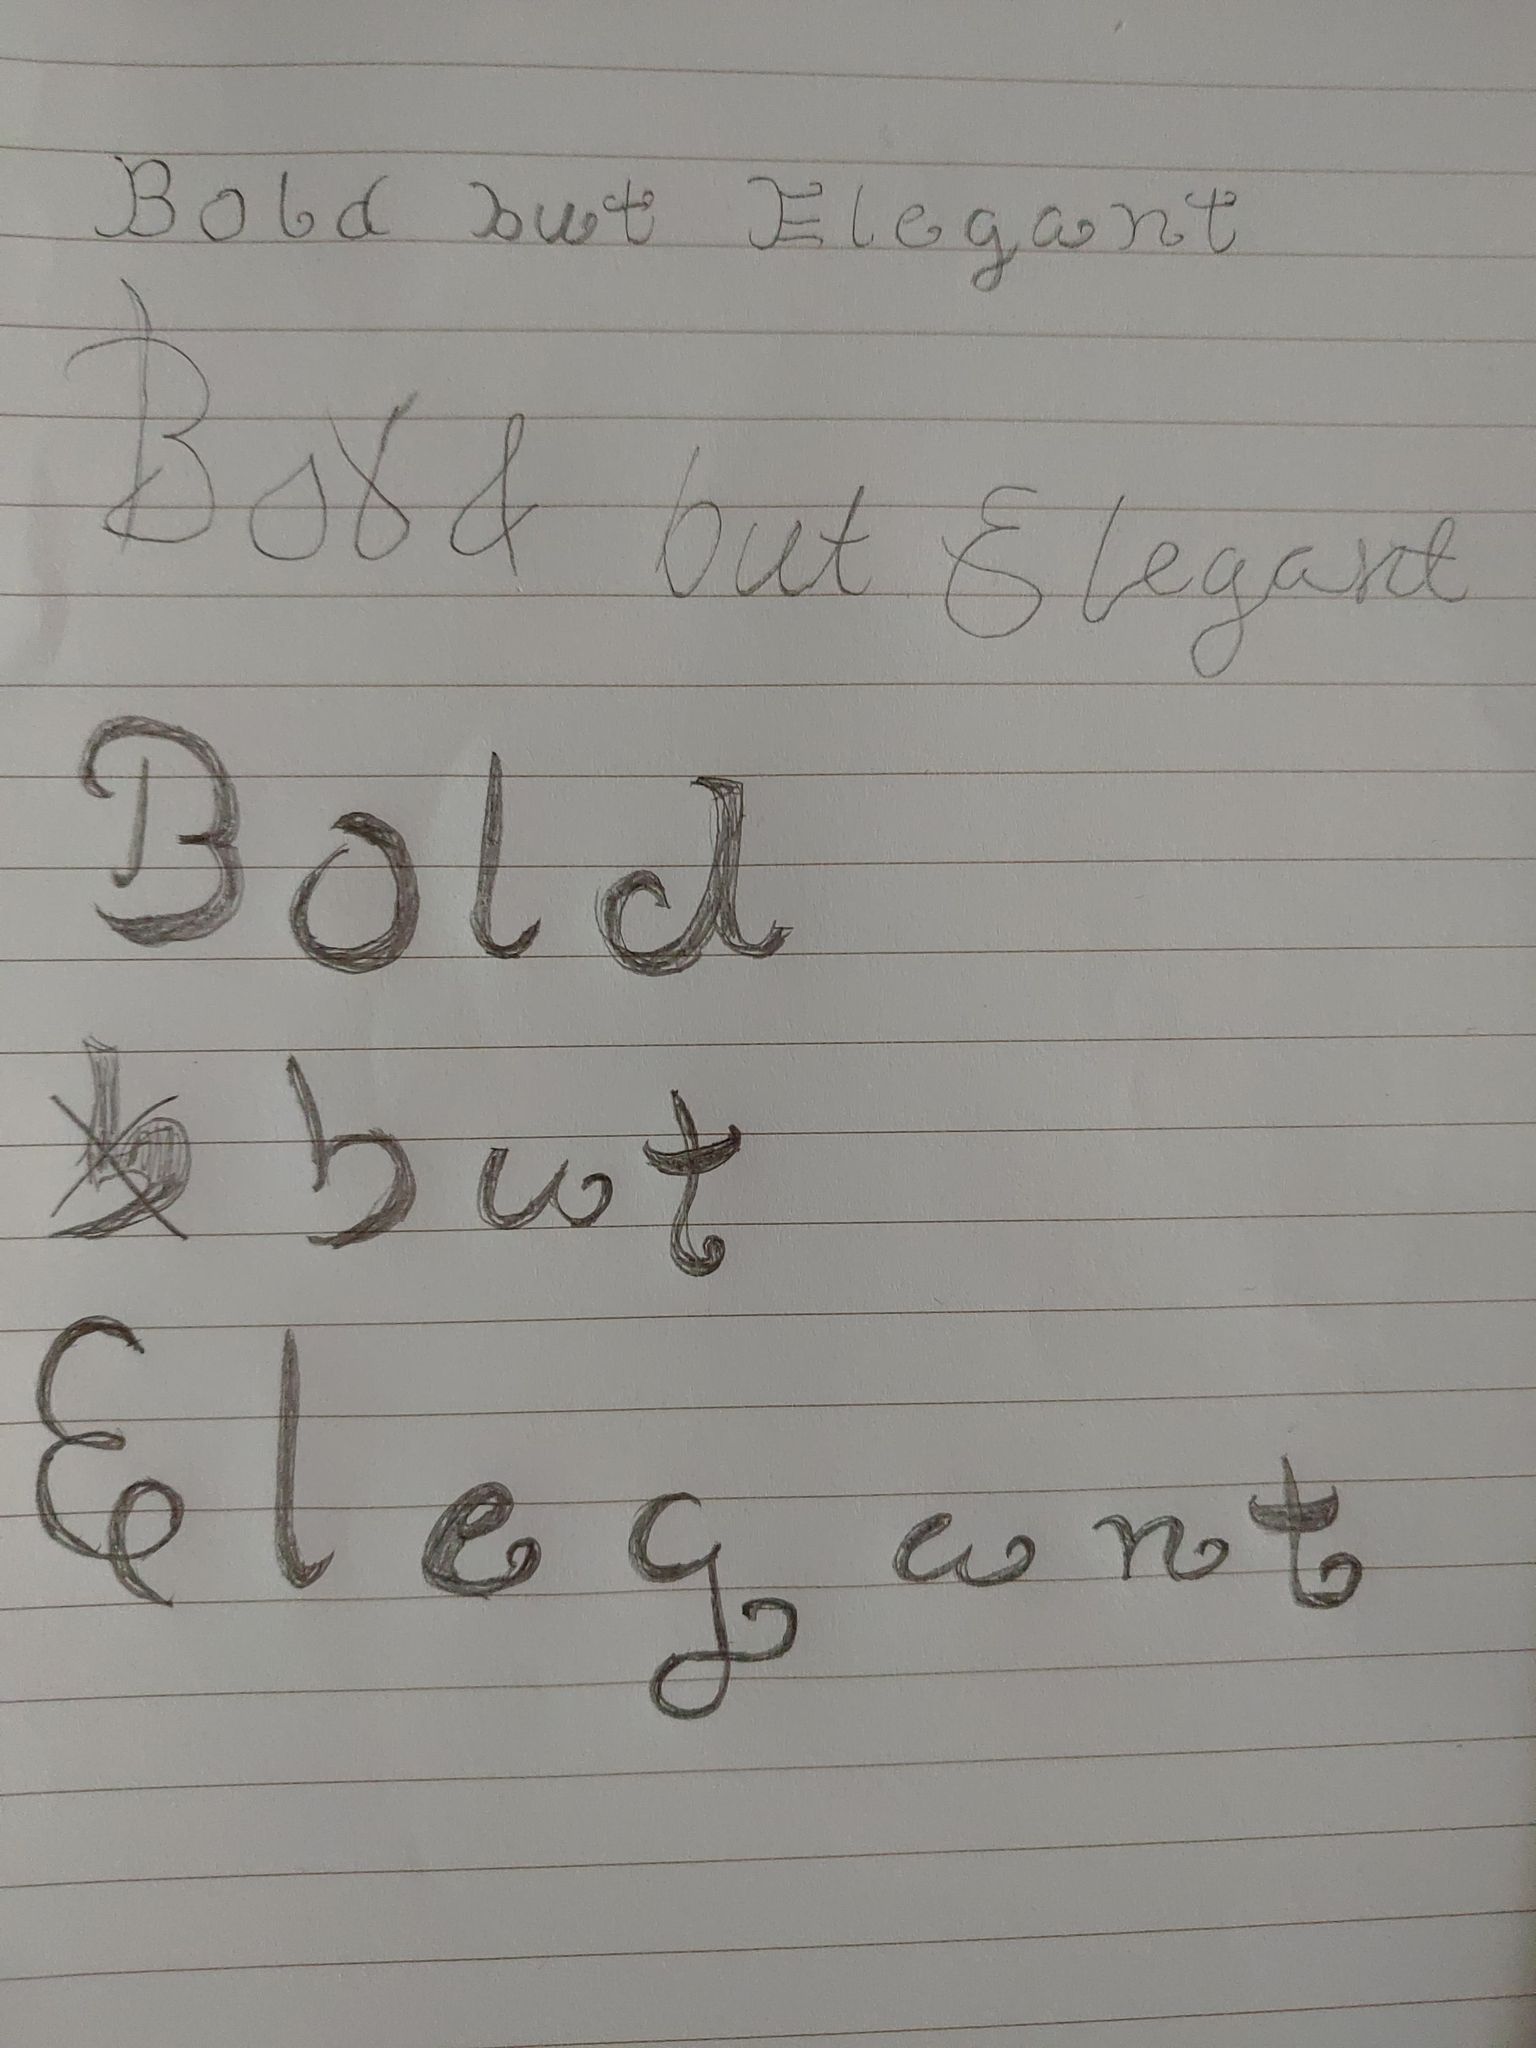 Bold but Elegant
Bold but Elegant
Bold
but
Elegant